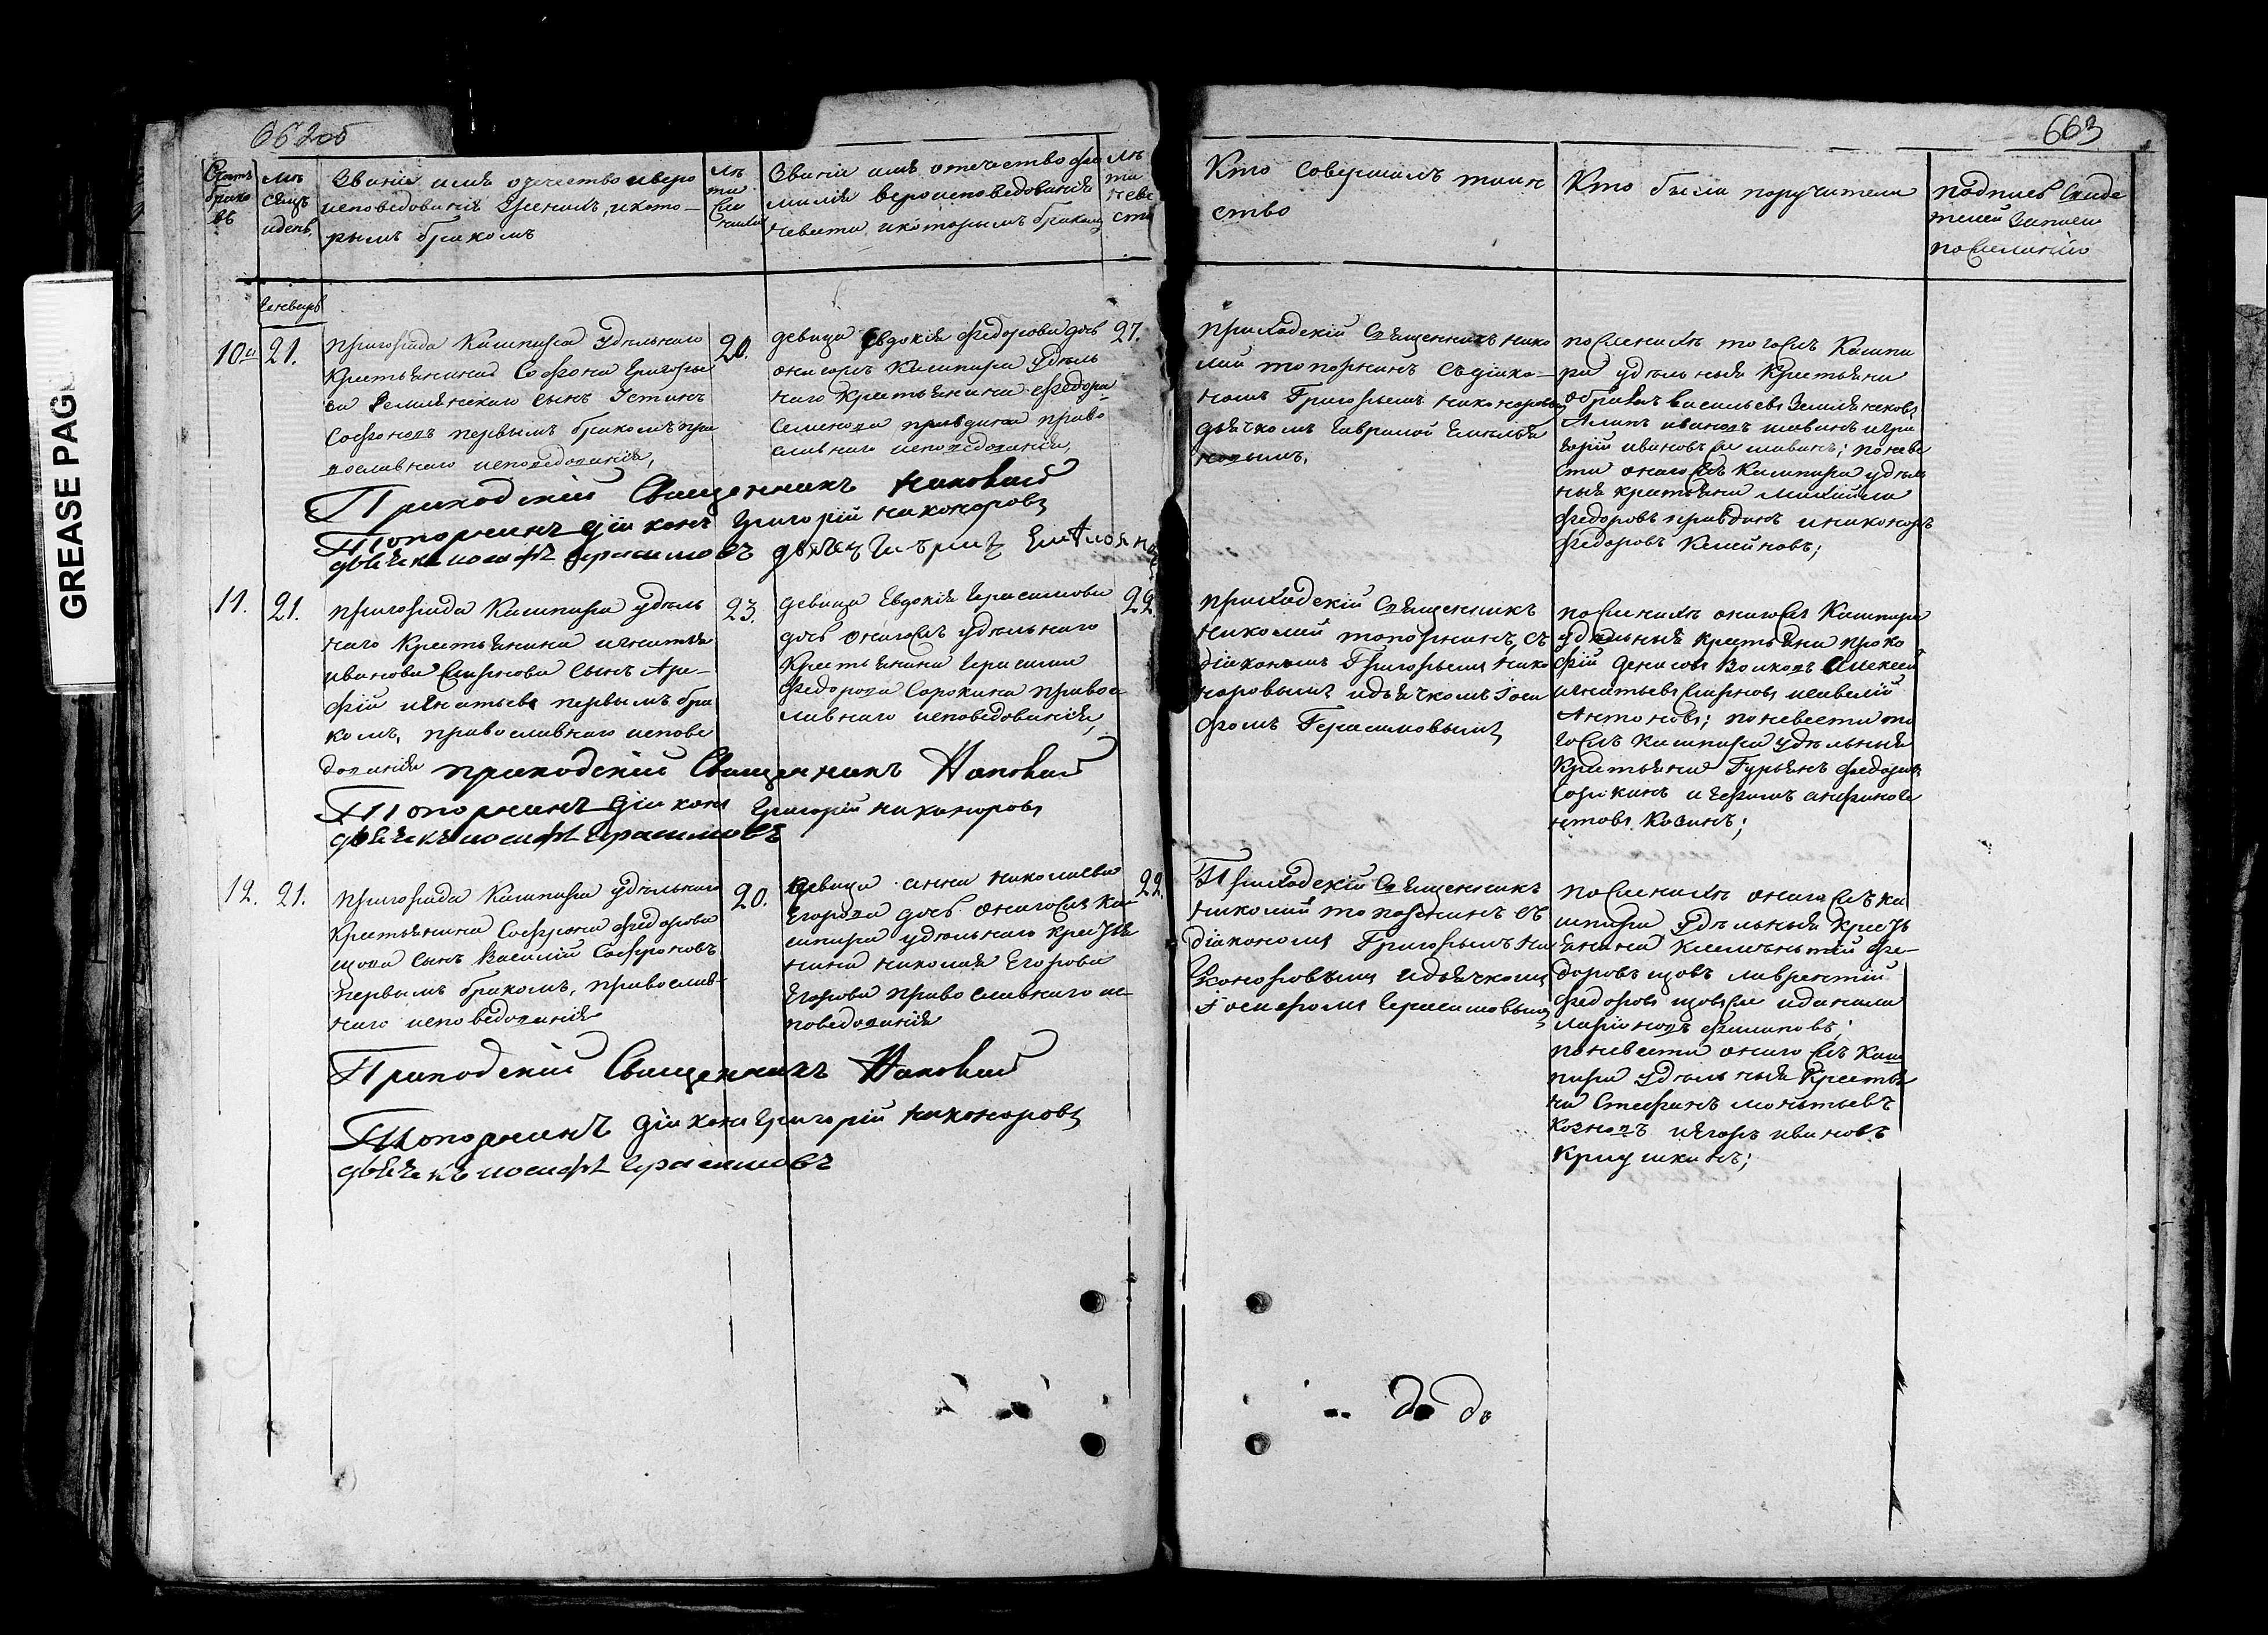 GREASE PAG
662об
663
Счетъ
брако
въ
Мѣ
сяцъ
и день
Званіе имя отечество и веро
исповедованія женихъ, и кото–
рымъ бракомъ
Лѣ
та
же
ниха
Званіе имя отечество фа
милія вероисповедованія
невеста, и которымъ бракомъ
Лѣ
та
неве
сты
Кто совершалъ таин
ство
Кто были поручители
подписъ Свиде
телей Записи
по желанію
Генварь
10й
21.
пригорода Кашпира Удѣльнаго
Крестьянина Софрона Григорье
ва Землянскаго сынъ Устинъ
Софроновъ первымъ бракомъ пра
вославнаго исповедованія,
20.
девица Евдокія Федорова дочь
онагожъ Кашпира Удѣль
наго Крестьянина Федора
Семенова правдина право
славнаго исповедованія,
27.
приходскій Священникъ Нико
лай топорнинъ съ діако–
номъ Григорьемъ Никоноровымъ
дьячкомъ Гаврилой Емелья
новымъ,
по женихѣ тогожъ Кашпи
ра удѣльныя Крестьяна
Васильевъ Земля нсковъ
Ивановъ шаванъ и гри
горій ивановъ же шаванъ; по неве
сти онагожъ Кашпира удѣль
ныя крестьяна Михайла
Федоровъ правдинъ и никоноръ
Федоровъ Клейновъ;
Приходскій Священникъ Николай
Топорнинъ діаконъ Григорій Никоноровъ
дьячекъ иосифъ Герасимовъ дьячекъ Емельяно
11.
21.
пригорода Кашпира удѣль
наго Крестьянина игнатья
иванова Смирнова сынъ Аре–
фій игнатьевъ первымъ бра
комъ, православнаго испове
дованія
23.
девица Евдокія Герасимова
дочь онагожъ удѣльнаго
Крестьянина Герасима
Федорова Сорокина правос
лавнаго исповедованія,
22.
приходскій Священникъ
Николай топорнинъ, съ
діакономъ Григорьемъ Нико
норовымъ и дьячкомъ Госи
фомъ Герасимовымъ
по женихѣ онагожъ Кашпира
удѣльныя крестьяна проко
фій денисовъ Волковъ Алексей
игнатьевъ Смирновъ исавелій
Антоновъ; по невести то
гожъ Кашпира удѣльныя
Крестьяна Гурьянъ Федоровъ
Сорокинъ и ефимъ
Косинъ;
приходскій Священникъ Николай
Топорнинъ діаконъ Григорій Никоноровъ
дьячекъ иосифъ Герасимовъ
12.
21.
пригорода Кашпира удѣльнаго
Крестьянина Софрона Федорова
щова сынъ Василій Софроновъ
первымъ бракомъ, православ–
наго исповедованія
20.
девица Анна Николаева
Егорова дочь онагожъ Ка
шпира удѣльнаго Крестья
нина Николая Егорова
Егорова православнаго ис–
поведованія
22.
Приходскій Священникъ
Николай топорнинъ съ
діакономъ Григорьемъ Ни
коноровымъ и дьячкомъ
Госифомъ Герасимовымъ
по женихѣ онагожъ Ка
шпира Удѣльныя Кресть
янина Климѣнътій Фе–
доровъ щовъ лаврентій
Федоровъ щовъ же и данила
ларіоновъ филиповъ;
по невести онагожъ Каш
пира удѣльныя Крестья
на Стефанъ
Козновъ и егоръ ивановъ
Криушкинъ;
Приходскій Священникъ Николай
Топорнинъ діаконъ Григорій Никоноровъ
дьячекъ иосифъ Герасимовъ